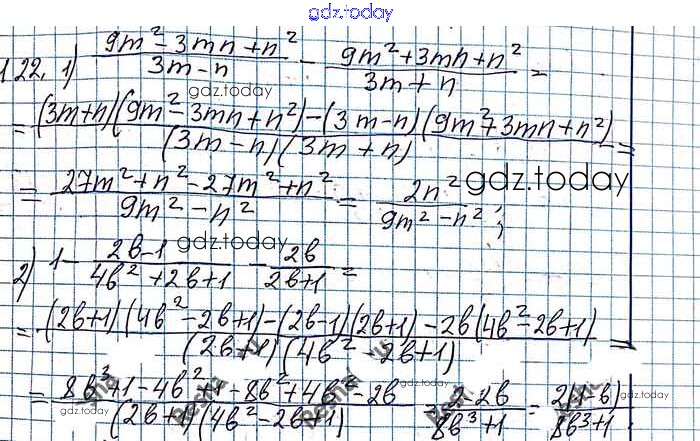 gdz.today
122. 1) (9m² - 3mn + n²)/(3m - n) - (9m² + 3mn + n²)/(3m + n) =
gdz.today
= ((3m+n)(9m² - 3mn + n²) - (3m-n)(9m² + 3mn + n²))/((3m - n)(3m + n)) =
= (27m² + n² - 27m² + n²)/(9m² - n²) = 2n²/(9m² - n²);
gdz.today
gdz.today
2) 1 - (2b-1)/(4b² + 2b + 1) - 2b/(2b+1) =
= ((2b+1)(4b² - 2b + 1) - (2b-1)(2b+1) - 2b(4b² - 2b + 1))/((2b+1)(4b² - 2b + 1)) =
= (8b³ + 1 - 4b² + 1 - 8b² + 4b² - 2b)/((2b+1)(4b² - 2b + 1)) = (2-2b)/(8b³+1) = 2(1-b)/(8b³+1)
gdz.today
gdz.today
gdz.today